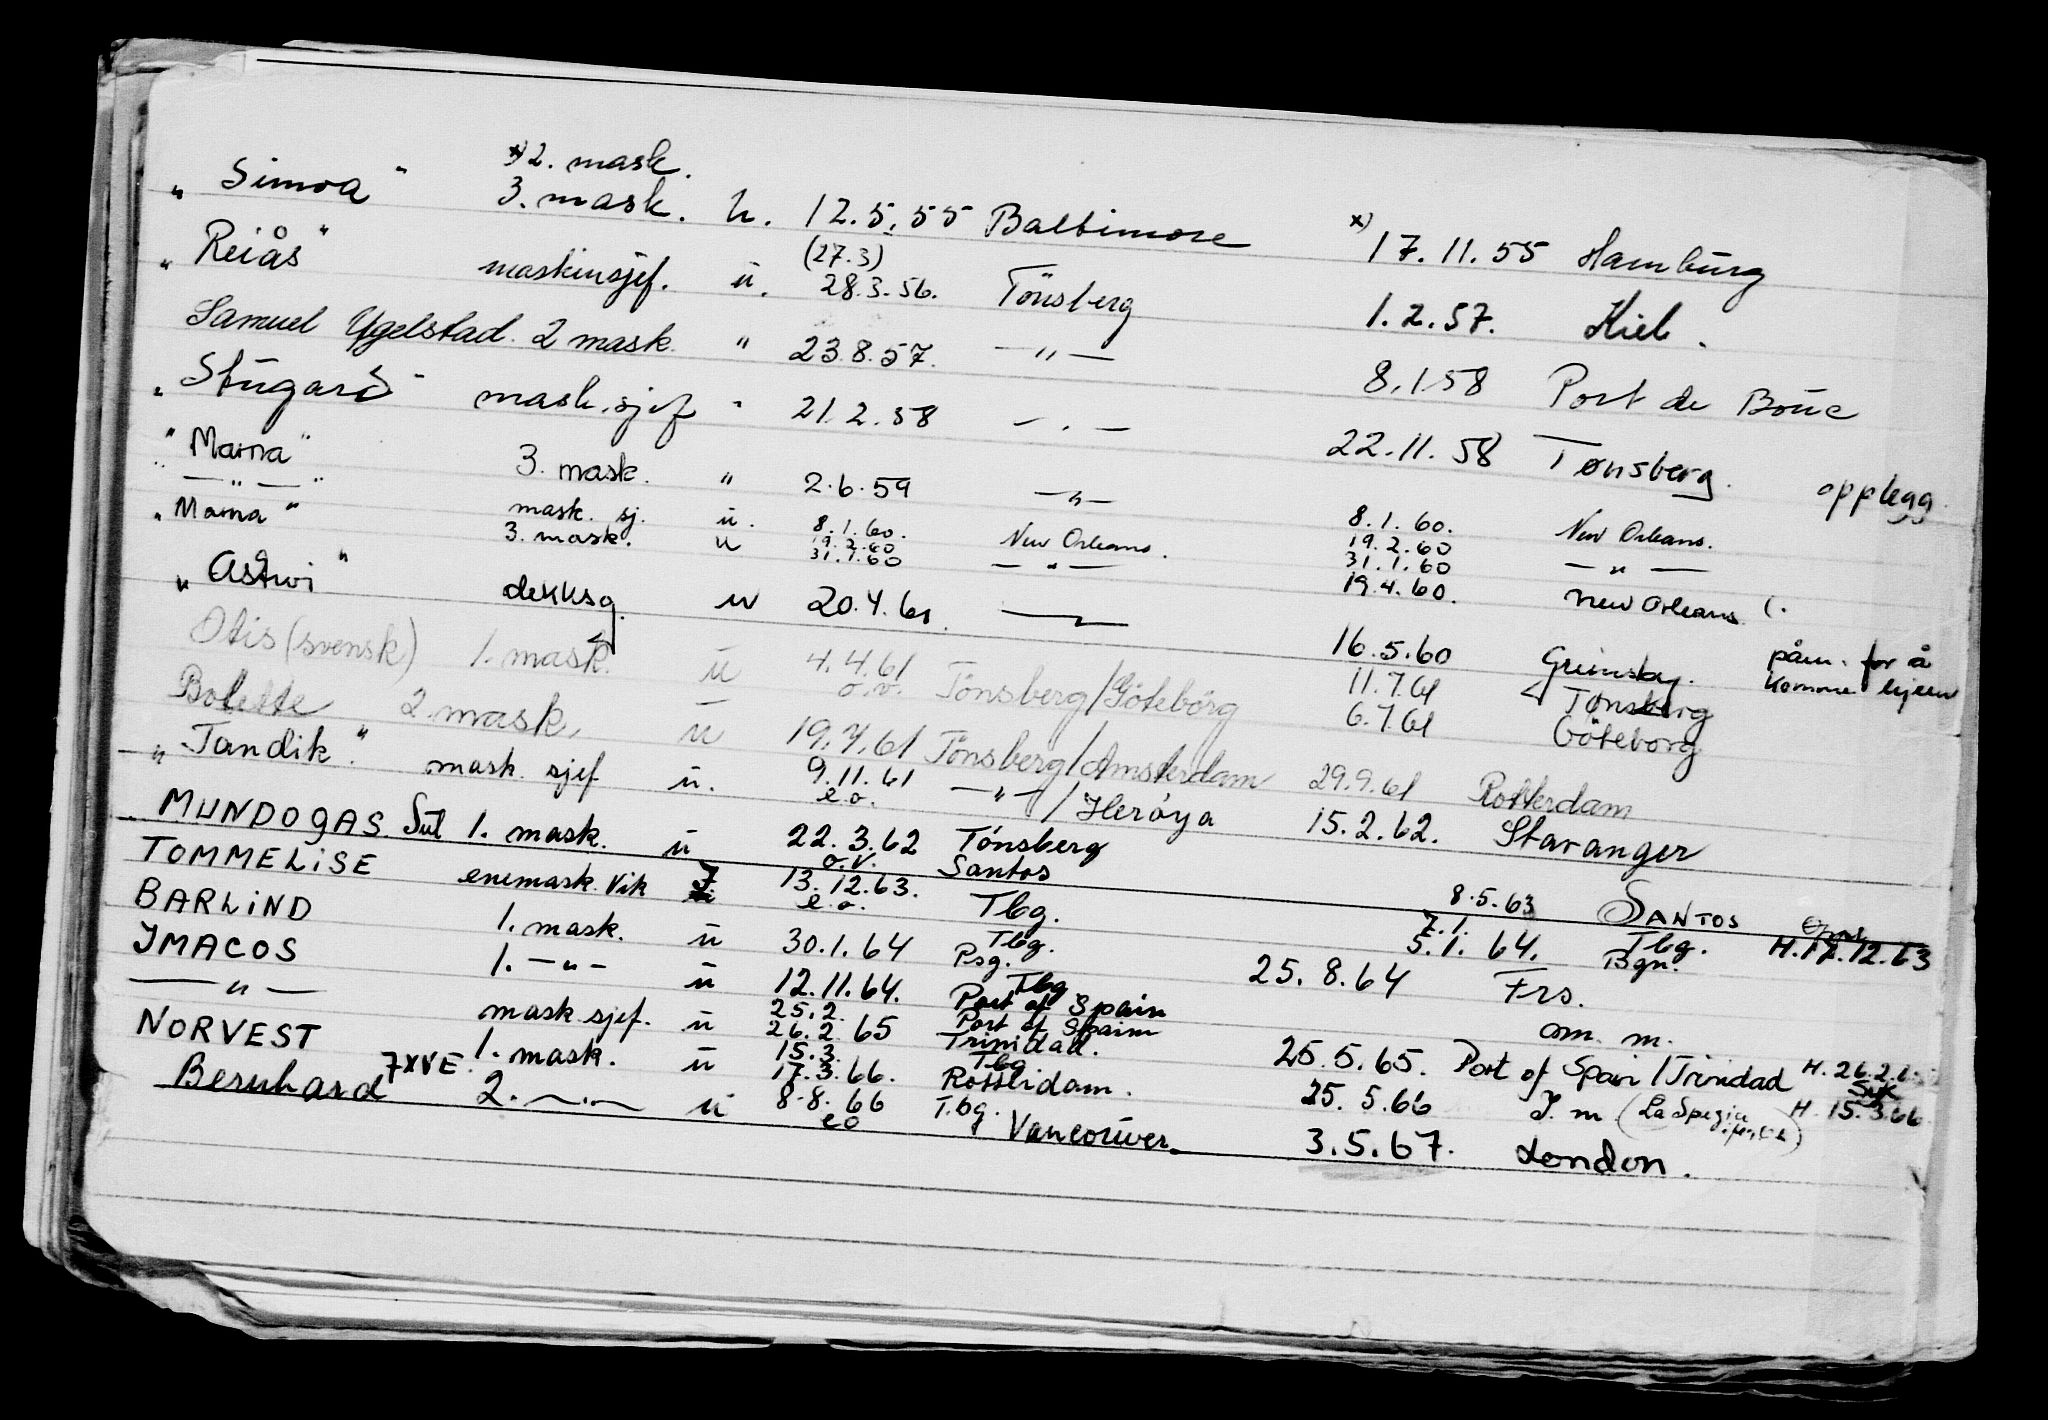 x) 2. mask.
„ Simoa " 3. mask. u. 12.5.55 Baltimore x) 17.11.55 Hamburg
(27.3)
„ Reiås " maskinsjef. u. 28.3.56. Tönsberg 1.2.57. Kiel.
Samuel Ugelstad. 2 mask. " 23.8.57. —"— 8.1.58 Port de Bouc
„ Stugard " mask.sjef " 21.2.58 —"— 22.11.58 Tønsberg. opplegg.
" Marna " 3. mask. " 2.6.59 —"— 8.1.60. New Orleans.
—"— mask. sj. u. 8.1.60. New Orleans. 19.2.60 —"—
19.2.60 31.1.60
„ Marna " 3. mask. u 31.1.60 —"— 19.4.60. New Orleans
„ Astwi " dekksg. u 20.4.60. 16.5.60 Grimsby. påm. for å komme hjem
Otis (svensk) 1. mask. u 4.4.61 Tönsberg/Göteborg 11.7.61 Tønsberg
o.v. 6.7.61 Göteborg
Bolette 2. mask. u 19.7.61 Tönsberg/Amsterdam 29.9.61 Rotterdam
„ Tandik " mask. sjef u. 9.11.61 —"—/Herøya 15.2.62. Stavanger
e.o.
MUNDOGAS 1. mask. u 22.3.62 Tönsberg 8.5.63 SANTOS
o.v. Santos
TOMMELISE enemask. Vik 13.12.63. Tbg. 7.1. Tbg. H. 12.12.63
e.o. 5.1.64. Bgn.
BARLIND 1. mask. u 30.1.64 Tbg. 25.8.64 Frs.
Psg.
IMACOS 1. —"— u 12.11.64. Tbg om. m.
Port of Spain
—"— mask sjef. u 25.2. Port of Spain 25.5.65. Port of Spain/Trinidad H. 26.2.65
26.2.65 Trinidad.
NORVEST 1. mask. u 15.3. Tbg 25.5.66 I.m (La Spezia H. 15.3.66
17.3.66. Rotterdam.
Bernhard 2. —"— u 8.8.66 Tbg. Vancouver. 3.5.67. London.
eo